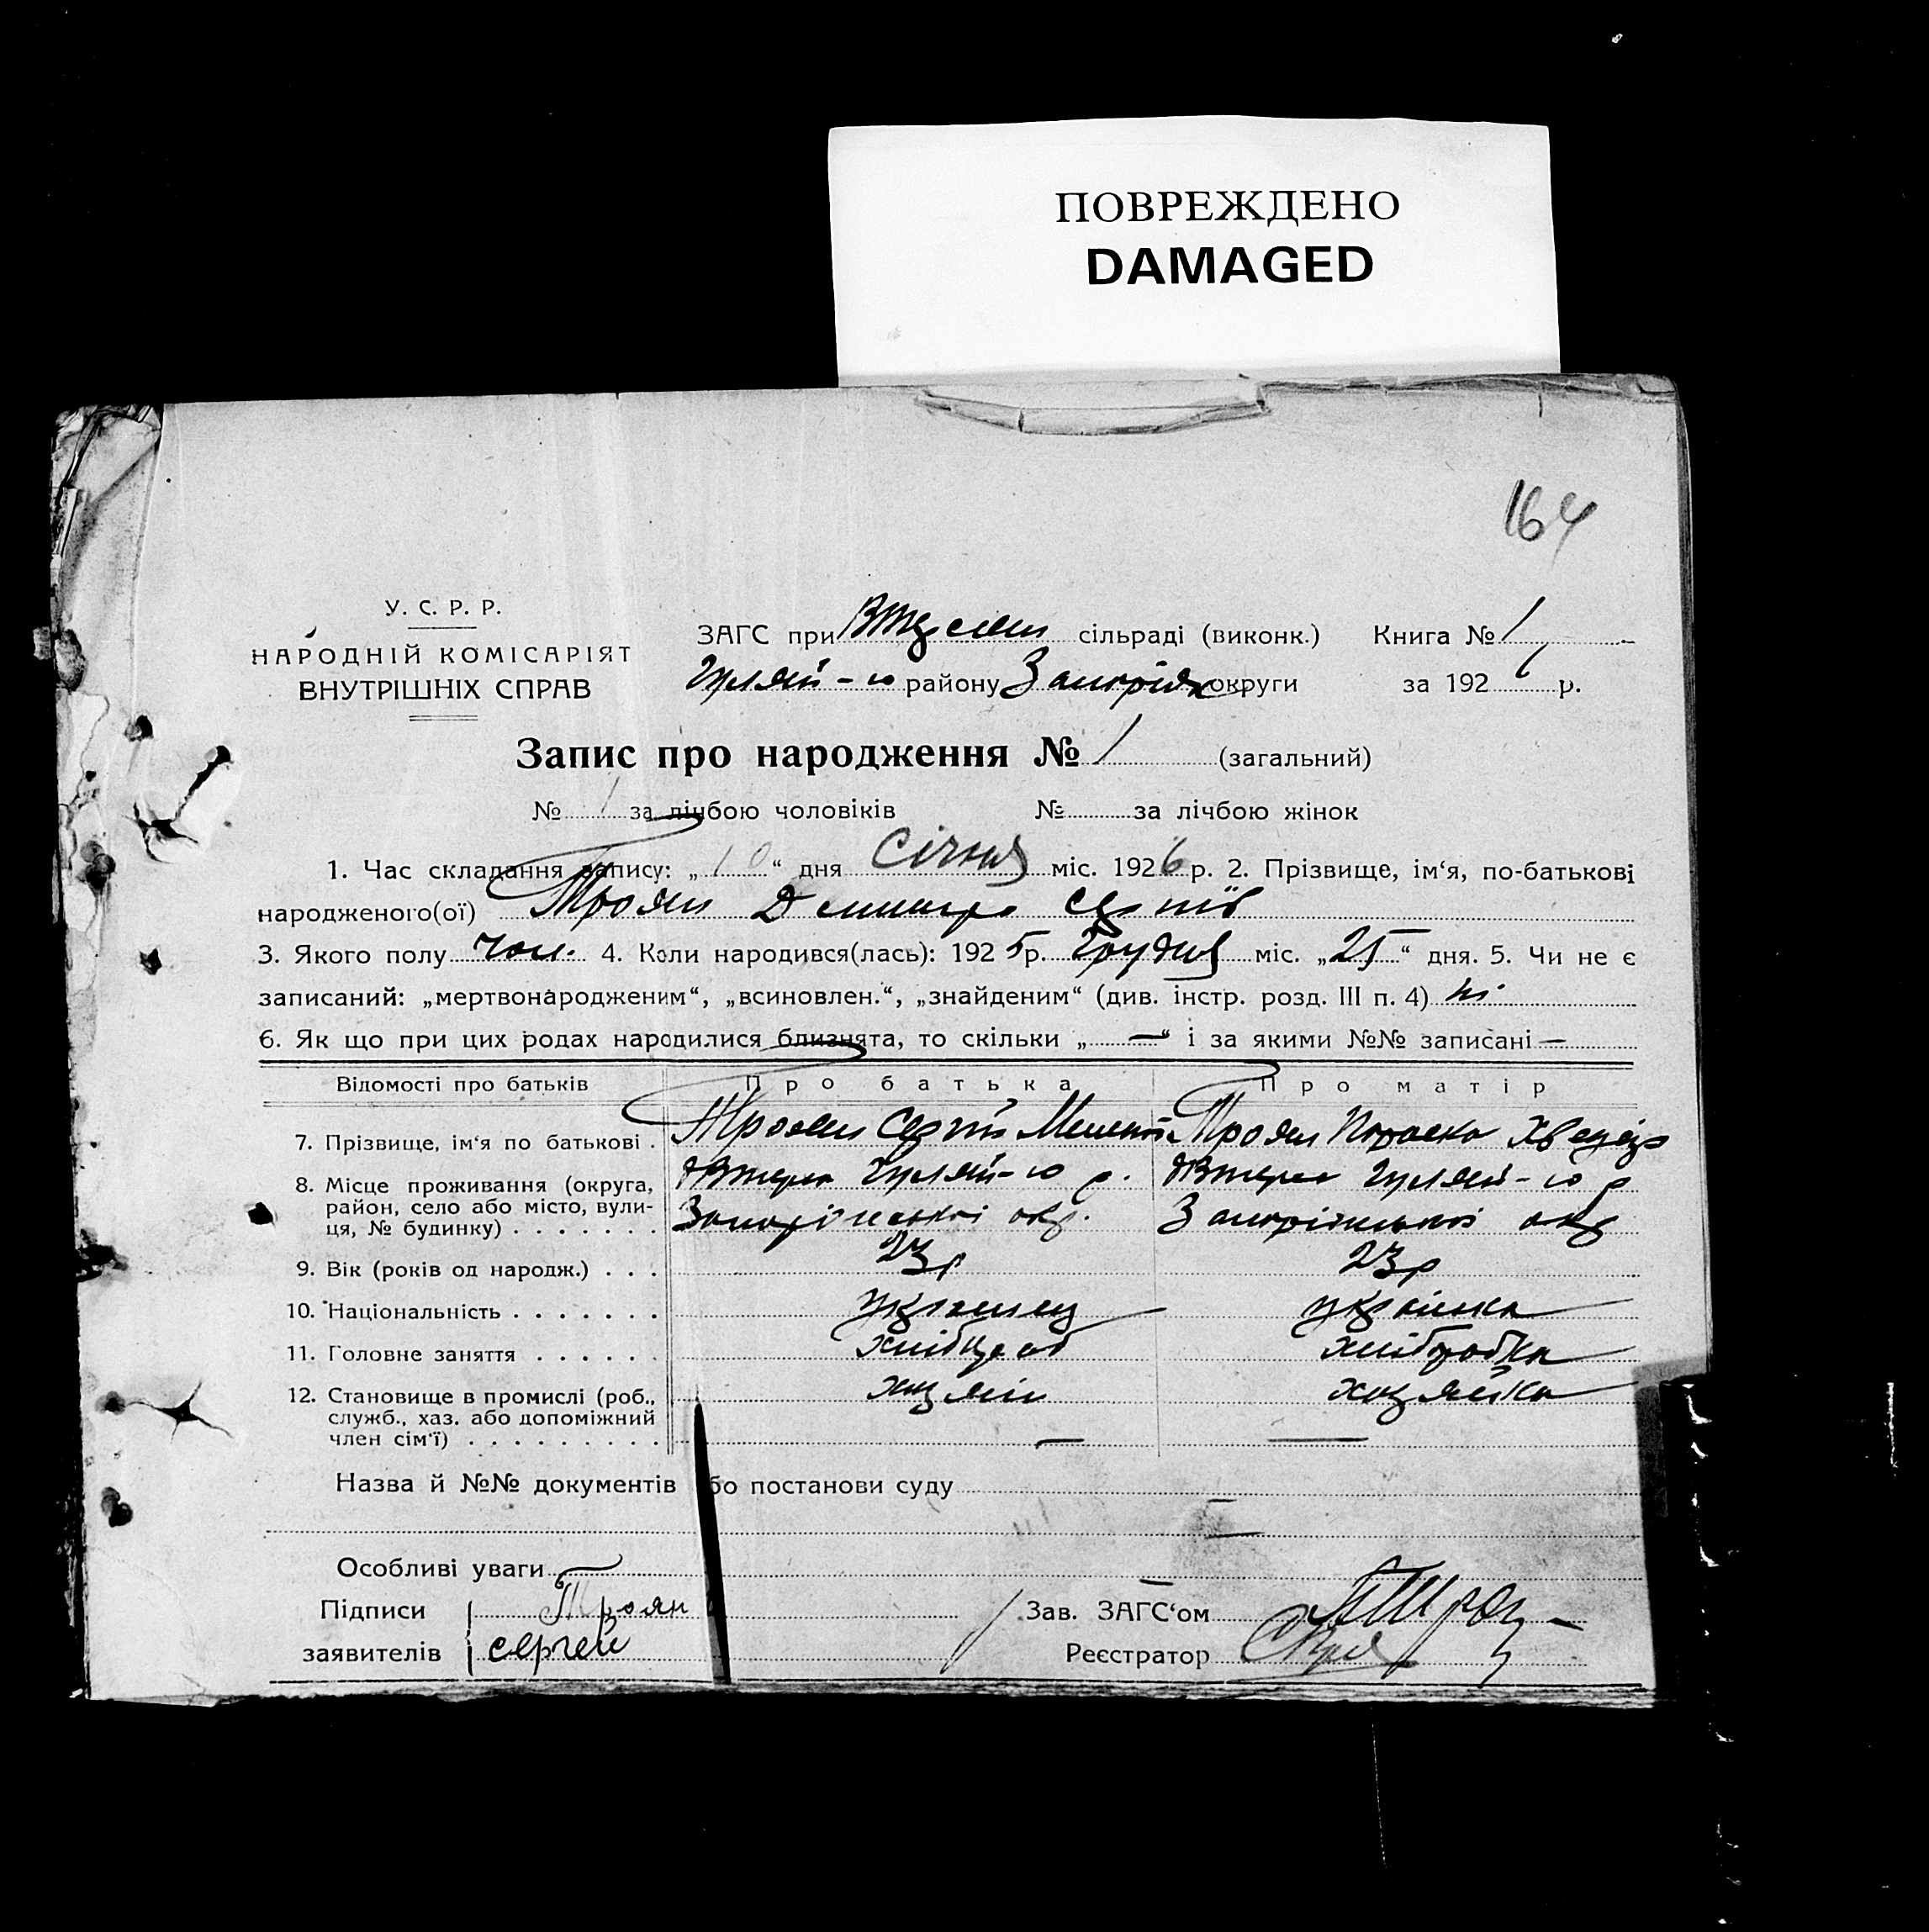 ПОВРЕЖДЕНО
DAMAGED
164
У. С. Р. Р.
НАРОДНІЙ КОМІСАРІЯТ
ВНУТРІШНІХ СПРАВ
ЗАГС при сільраді (виконк.) Книга № 1
Гуляй-го району Запоріж округи за 1926 р.
Запис про народження № 1 (загальний)
№ 1 за лічбою чоловіків № за лічбою жінок
1. Час складання запису: „10“ дня Січня міс. 1926 р. 2. Прізвище, ім‘я, по-батькові
народженого(ої) Троян Дмитро
3. Якого полу чол. 4. Коли народився(лась): 1925 р. Грудня міс. „25“ дня. 5. Чи не є
записаний: „мертвонародженим“, „всиновлен.“, „знайденим“ (див. інстр. розд. III п. 4) ні
6. Як що при цих родах народилися близнята, то скільки „—“ і за якими №№ записані —
Відомості про батьків Про батька Про матір
7. Прізвище, ім‘я по батькові . Троян Сергій Троян Параска
8. Місце проживання (округа, Гуляй-го р. Гуляй-го р
район, село або місто, вули-
ця, № будинку) . . . . . . . Запоріжської окр. Запоріжської окр
9. Вік (років од народж.) . . . 23р 23р
10. Національність . . . . . . . українец українка
11. Головне заняття . . . . . . хлібороб хліборобка
12. Становище в промислі (роб., хазяін хазяйка
служб., хаз. або допоміжний
член сім‘ї) . . . . . . . . . — —
Назва й №№ документів бо постанови суду
—
Особливі уваги —
Підписи Троян Зав. ЗАГС‘ом
заявителів Сергей Реєстратор